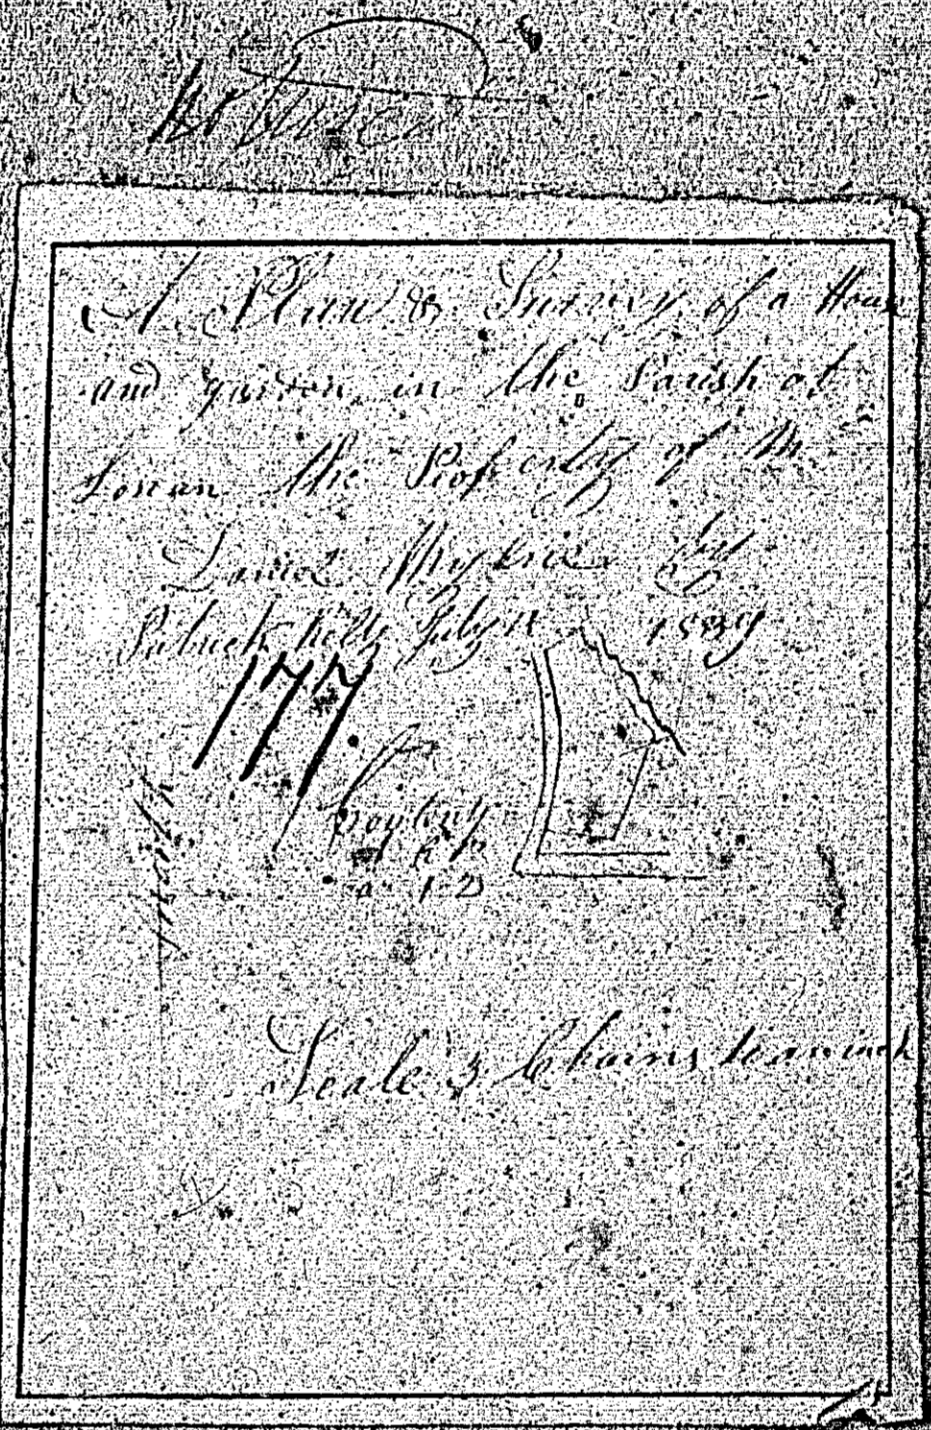 A Plan & Survey of a House
and garden in the Parish of
Lonan the Property of Mr
Daniel By
Patrick Kelly July 1839
177
a r p
0 1 2
North
Scale 3 Chains to an inch